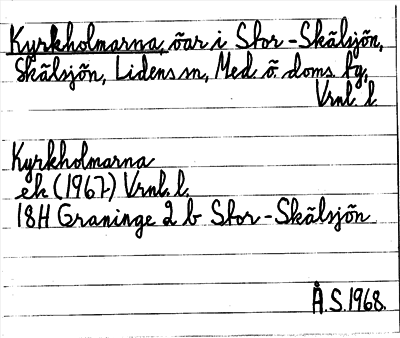 Kyrkholmarna, öar i Stor-Skälsjön,
Skälsjön, Lidens sn, Med. ö. doms. fg,
Vrnl. l.
Kyrkholmarna
ek (1967) Vrnl. l.
18H Graninge 2 b Stor-Skälsjön
Å.S. 1968.